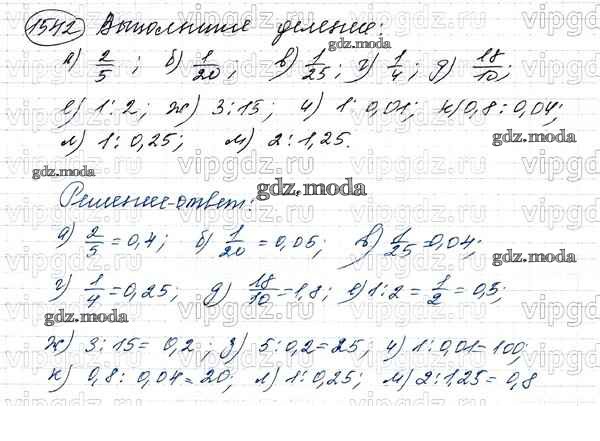 1542) Выполните деление:
а) 2/5; б) 1/20; в) 1/25; г) 1/4; д) 18/10;
е) 1:2; ж) 3:15; и) 1:0,01; к) 0,8:0,04;
л) 1:0,25; м) 2:1,25.
Решение-ответ:
а) 2/5 = 0,4; б) 1/20 = 0,05; в) 1/25 = 0,04;
г) 1/4 = 0,25; д) 18/10 = 1,8; е) 1:2 = 1/2 = 0,5;
ж) 3:15 = 0,2; з) 5:0,2 = 25; и) 1:0,01 = 100;
к) 0,8:0,04 = 20; л) 1:0,25; м) 2:1,25 = 0,8
gdz.moda
vipgdz